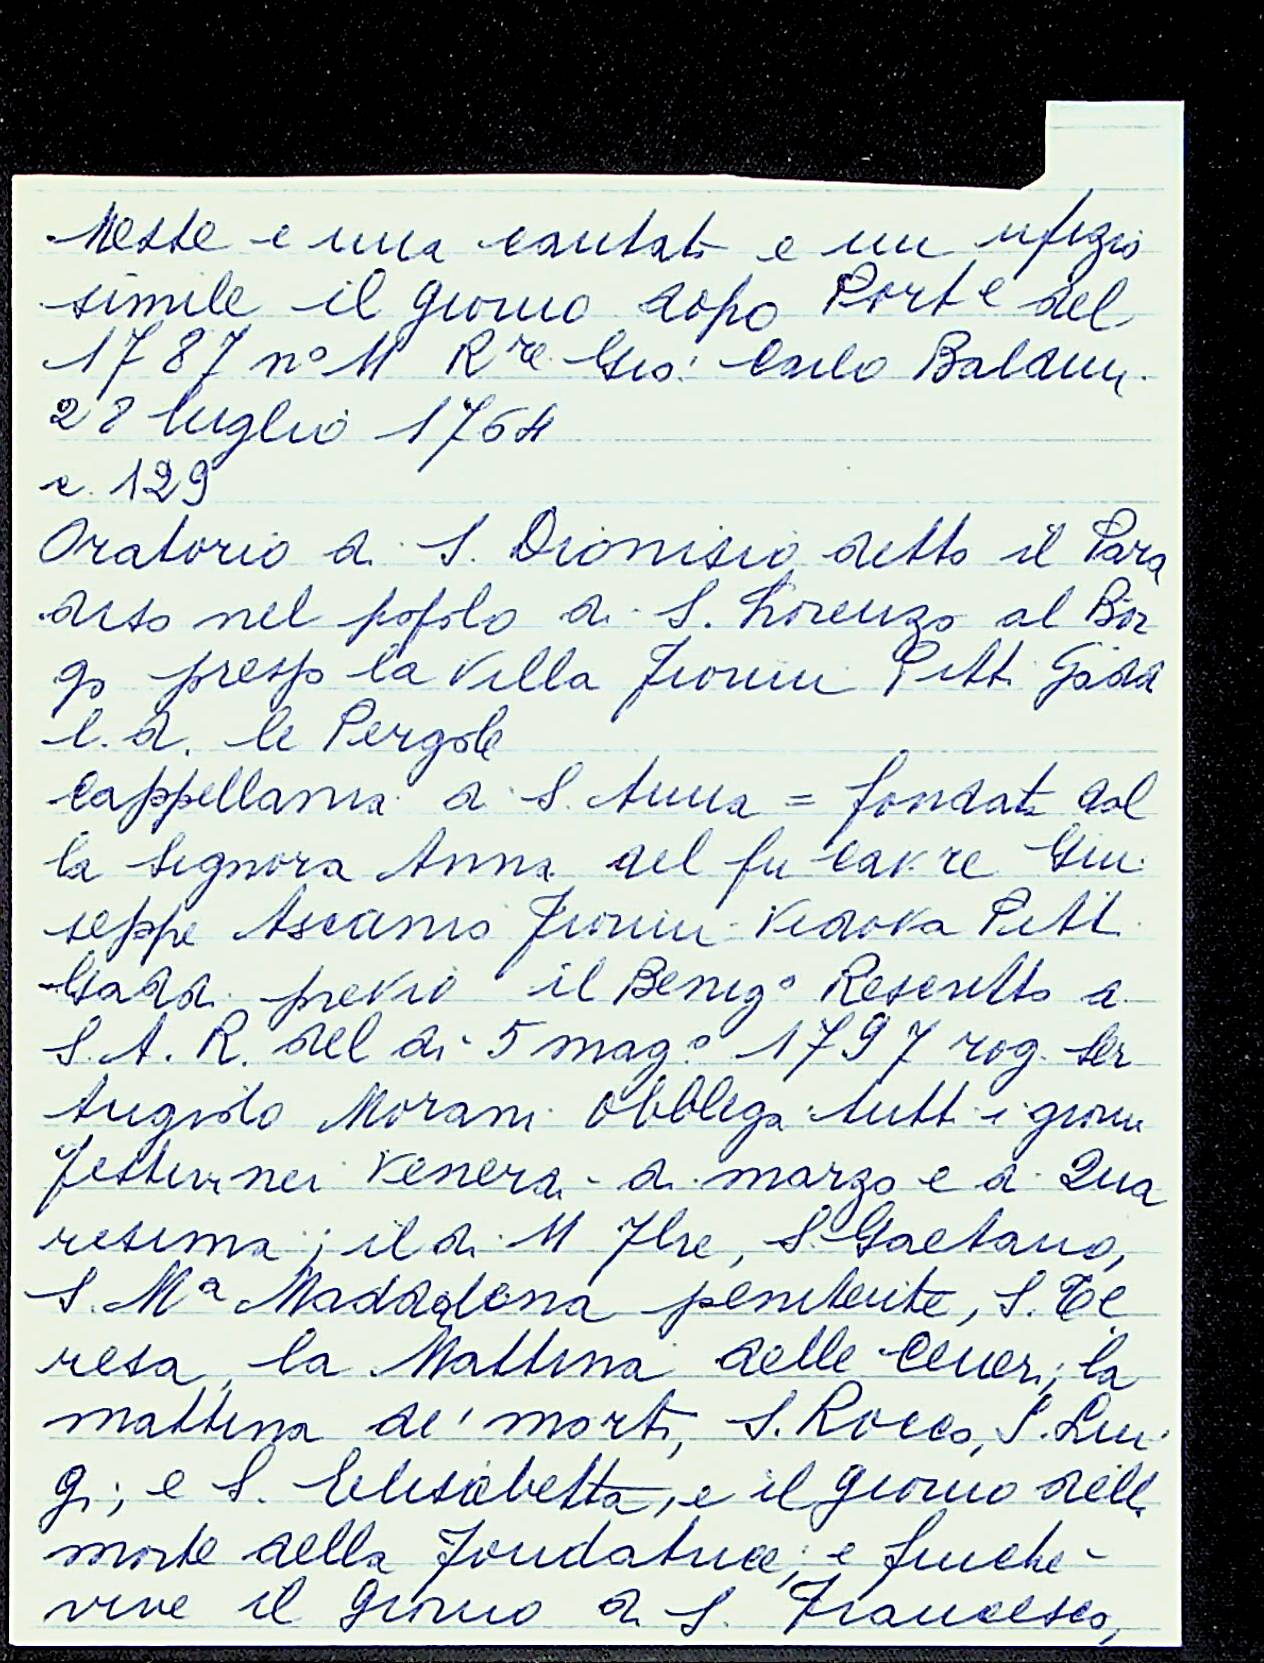 Messe e una cantata e un ufizio
simile il giorno dopo Porte del
1787 n° 11 R.re Gio: Carlo Baldini
28 luglio 1764
c. 129
Oratorio di S. Dionisio detto il Para
diso nel popolo di S. Lorenzo al Bor
go presso la Villa Fiorini Pitti Gaddi
l.d. le Pergole
Cappellania di S. Anna = fondata dal
la Signora Anna del fu Cav.re Giu
seppe Ascanio Fiorini Vedova Pitti
Gaddi previo il Benig° Rescritto di
S. A. R. del di 5 mag.° 1797 rog. Ser
Angiolo Morani Obbliga tutti i giorni
festivi nei Venerdi di marzo e di Qua
resima; il di 11 , S. Gaetano,
S. Mª Maddalena penitente, S. Te
resa, la Mattina delle Ceneri; la
mattina de' morti, S. Rocco, S. Lui
gi; e S. Elisabetta, e il giorno della
morte della Fondatrice; e finche
vive il giorno di S. Francesco,